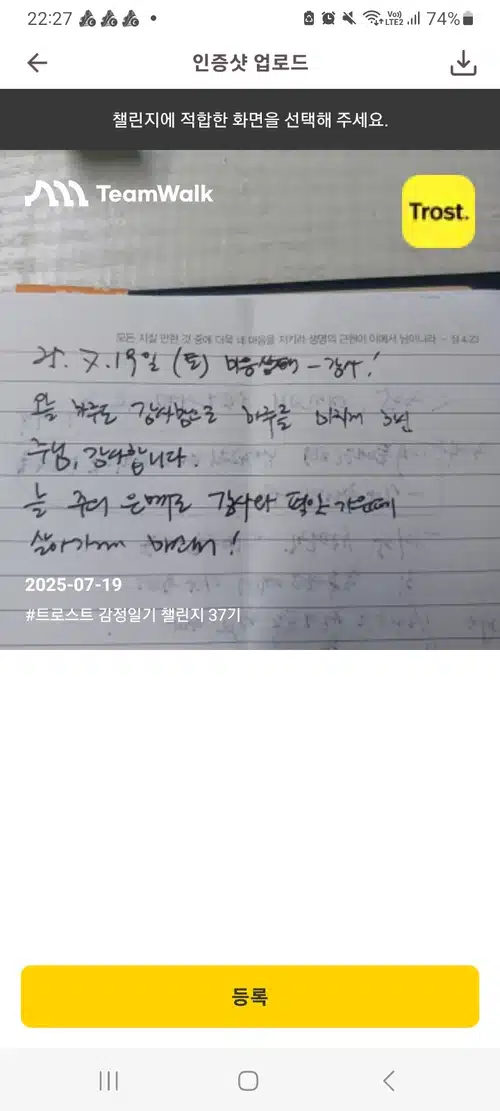 22:27
Vo))
LTE2
74%
인증샷 업로드
챌린지에 적합한 화면을 선택해 주세요.
TeamWalk
Trost.
모든 지킬 만한 것 중에 더욱 네 마음을 지키라 생명의 근원이 이에서 남이니라 - 잠 4:23
25. 7. 19일 (토) 마음상태 - 감사!
오늘 하루도 감사함으로 하루를
주님, 감사합니다.
늘 주의 은혜로 감사와 평안 가운데
살아가게 하소서!
2025-07-19
#트로스트 감정일기 챌린지 37기
등록